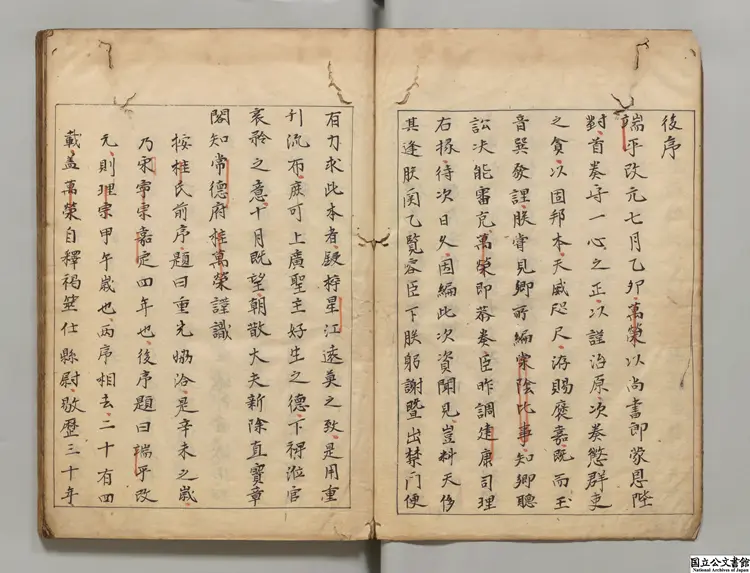 後序
端平改元七月乙卯萬榮以尚書郎蒙恩陛
對首奏守一心之正以謹治原次奏懲群吏
之貪以固邦本天威咫尺洊賜襃嘉既而玉
音巽發朕嘗見卿所編棠陰比事知卿聽
訟決能審克萬榮即恭奏臣昨調建康司理
右掾待次日久因編此次資聞見豈料天侈
其逢朕関乙覽容臣下朕躬謝暨出禁門便
有力求此本者鋟梓星江遠莫之致是用重
刊流布庶可上廣聖主好生之德下裨涖官
哀矜之意十月既望朝散大夫新除直寳章
閣知常德府桂萬榮謹識
按桂氏前序題曰重光協洽是辛未之歲
乃宋寧宗嘉定四年也後序題曰端平改
元則理宗甲午歲也兩序相去二十有四
載盖萬榮自釋褐筮仕縣尉敭歷三十年
国立公文書館
National Archives of Japan